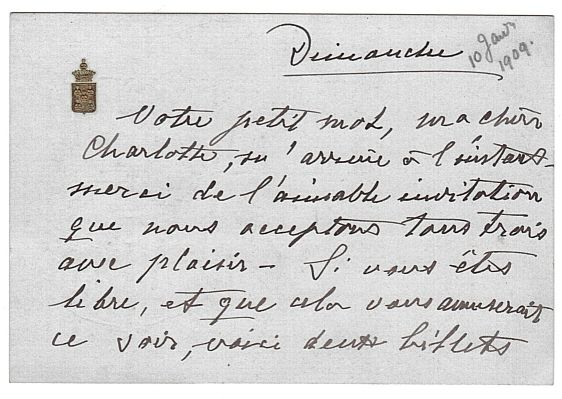 Dimanche
10 Janv.
1909.
Votre petit mot, ma chère
Charlotte, m'arrive à l'instant -
merci de l'aimable invitation
que nous acceptons tous trois
avec plaisir - Si vous êtes
libre, et que cela vous amuserait
ce soir, voici deux billets